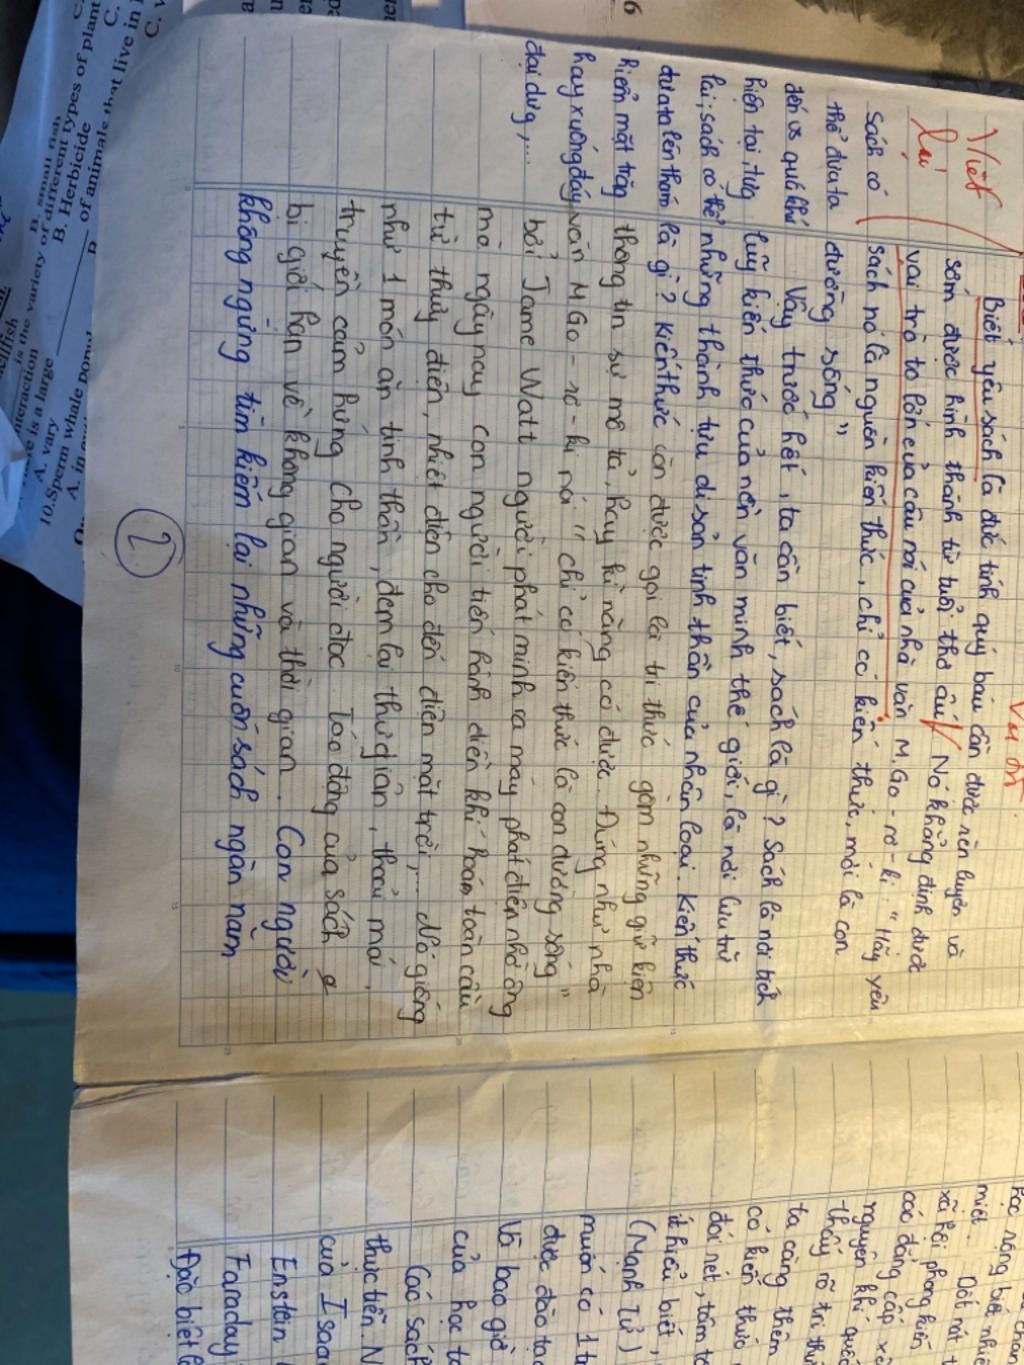 Viết
lại
Biết yêu sách là đức tính quý báu cần được rèn luyện và
sớm được hình thành từ tuổi thơ ấu. Nó khẳng định được
vai trò to lớn của câu nói của nhà văn M.Go-rơ-ki: "Hãy yêu
sách nó là nguồn kiến thức, chỉ có kiến thức, mới là con
đường sống"
Vậy trước hết, ta cần biết, sách là gì? Sách là nơi tích
luỹ kiến thức của nền văn minh thế giới, là nơi lưu trữ
những thành tựu di sản tinh thần của nhân loại. Kiến thức
là gì? Kiến thức còn được gọi là tri thức gồm những giữ kiện
thông tin sự mô tả, hay kĩ năng có được. Đúng như nhà
văn M Go-rơ-ki nói "chỉ có kiến thức là con đường sống"
bởi Jame Watt người phát minh ra máy phát điện nhờ ông
mà ngày nay con người tiến hành điền khí hoá toàn cầu
từ thuỷ điện, nhiệt điện cho đến điện mặt trời,... Nó giống
như 1 món ăn tinh thần, đem lại thư giãn, thoải mái,
truyền cảm hứng cho người đọc. Tác động của sách
bị giới hạn về không gian và thời gian. Con người
không ngừng tìm kiếm lại những cuốn sách ngàn năm
2
Sách có
thể đưa ta
đến vs quá khứ
hiện tại, tương
lai; sách có thể
đưa ta lên thám
hiểm mặt trăng
hay xuống đáy
đại dương,...
học rộng biết nhiề
miệt. Dốt nát t
xã hội phong kiến
các đẳng cấp xã
nguyên khí quố
thấy rõ tri thứ
ta càng thêm
có kiến thức
đói nét, tăm tố
ít hiểu biết,
(Mạnh Tử)
muốn có 1 t
được đào tạo
Vô bao giờ
của học t
Các sách
thực tiễn. N
của Isaa
Enstein
Faraday
Đặc biệt l
6
B. small fish
is the variety of different types of plant
interaction
B. Herbicide
A. vary
of animals that live in
10.Sperm whale